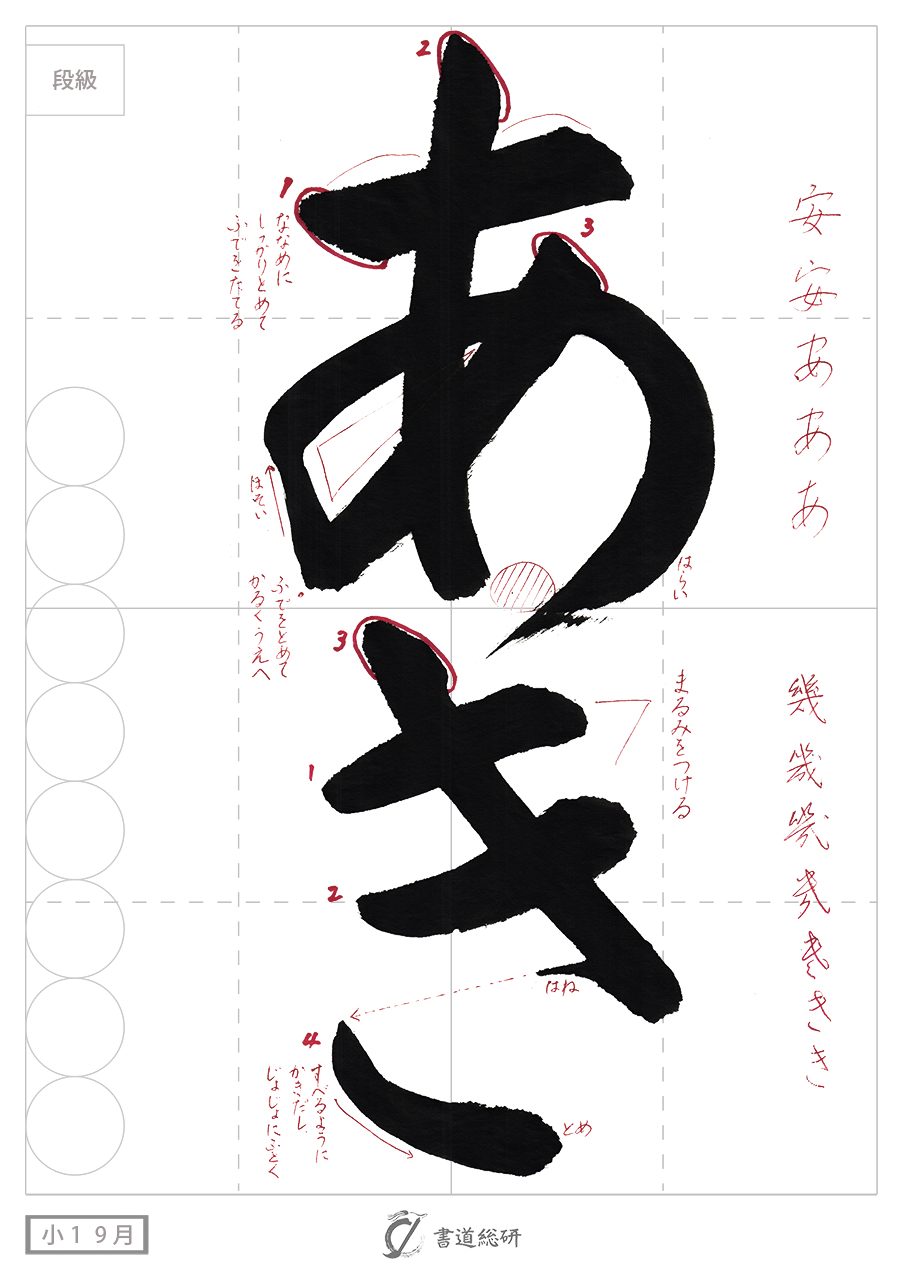 段級
あき
1
2
3
ななめに
しっかりとめて
ふでをたてる
ほそい
はらい
ふでをとめて
かるくうえへ
1
2
3
4
まるみをつける
はね
すべるように
かきだし
じょじょにふとく
とめ
安
安
あ
あ
あ
幾
幾
き
き
き
小1 9月
書道総研